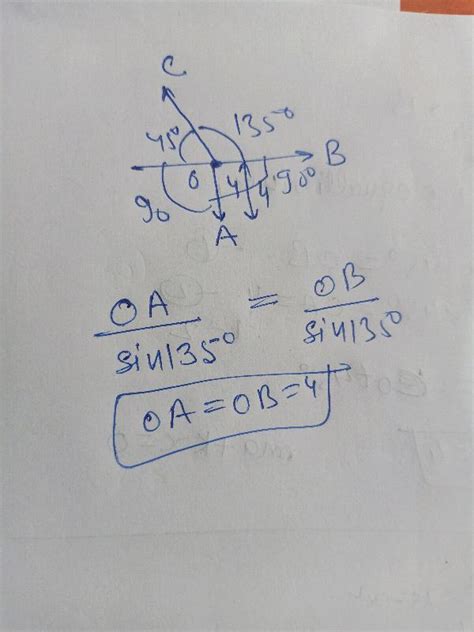 C
45° 135°
B
90 0 4 4 90°
A
OA/sin135° = OB/sin135°
OA = OB = 4